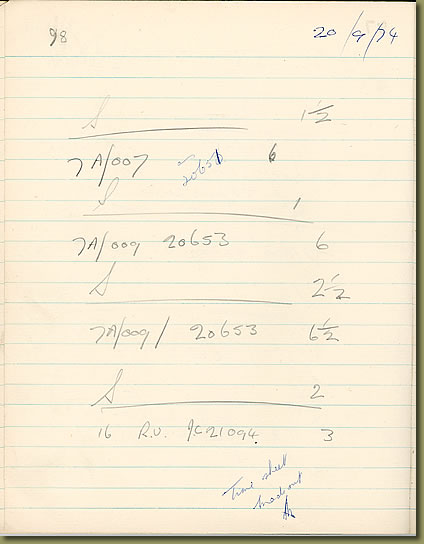 98 20/9/74
S 1½
7A/007 20651 6
S 1
7A/009 20653 6
S 2½
7A/009/ 20653 6½
S 2
16 R.U. J.C21094. 3
Time sheet
made out